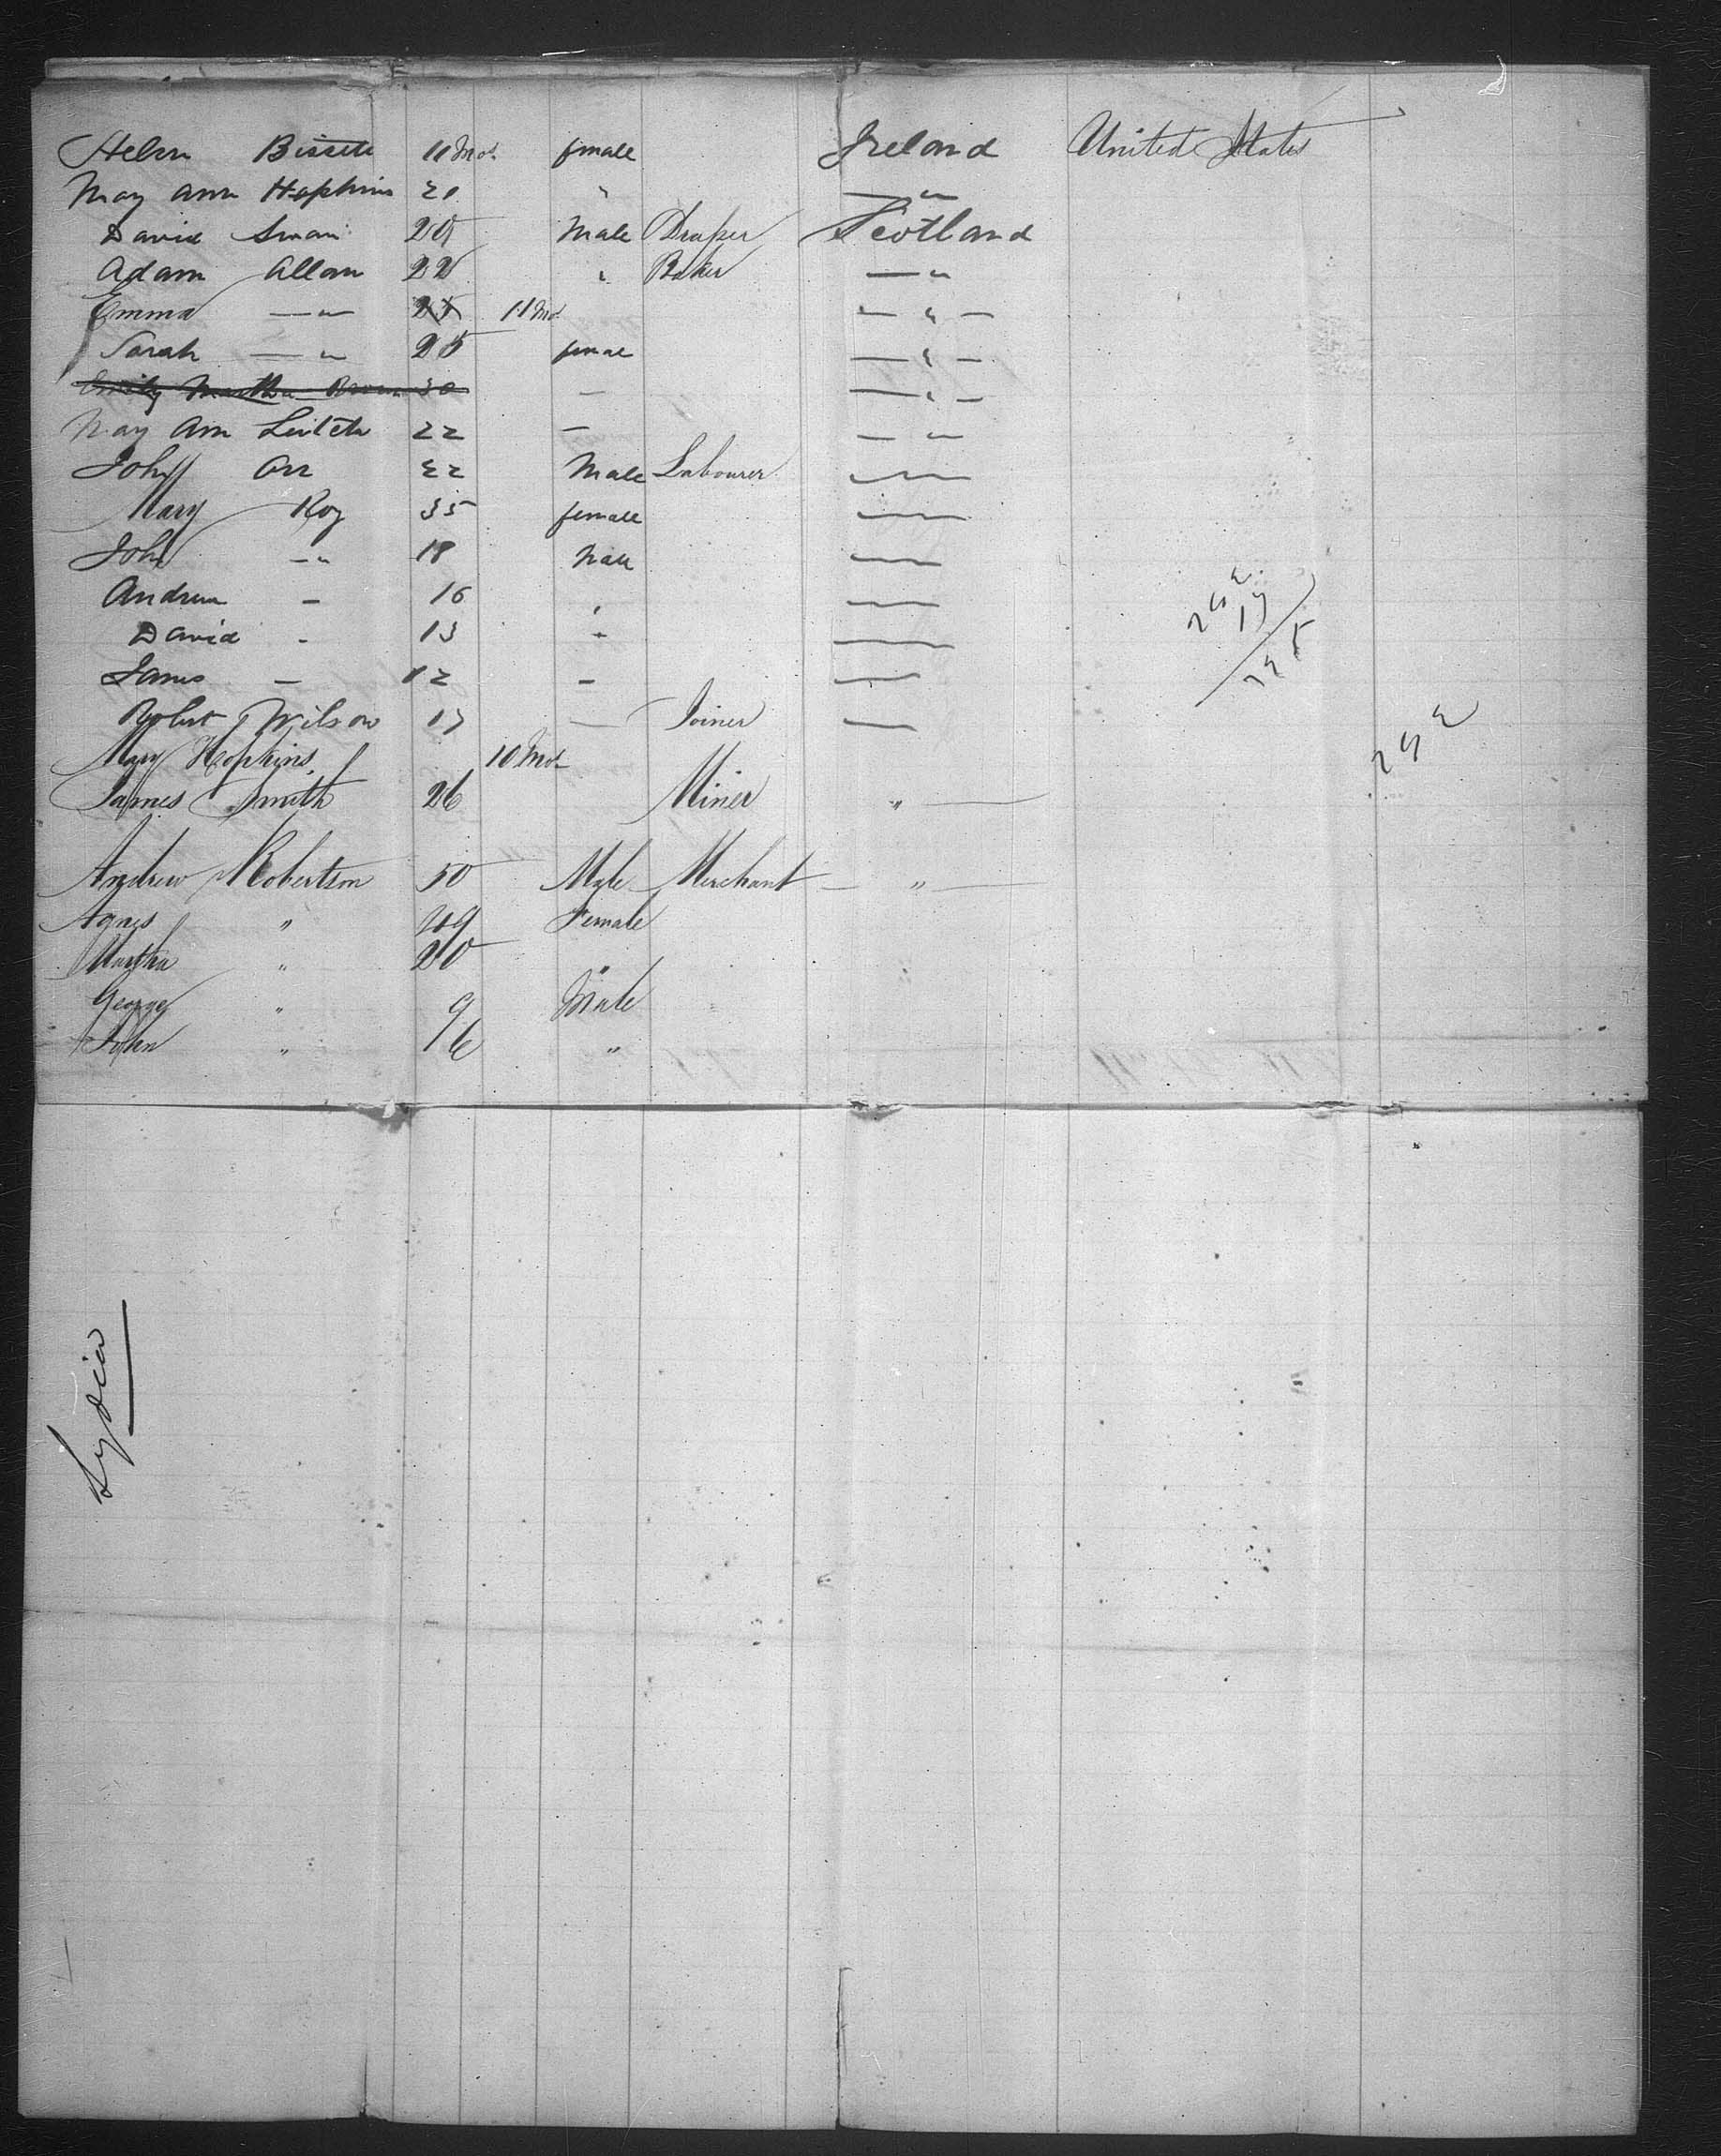 Helen Bissett 10 Mos female Ireland United States
May Ann Hopkins 21 " — "
David Swan 20 Male Draper Scotland
Adam Allan 22 " Baker — "
Emma — " 11 Mos — " —
Sarah — " 25 female — " —
Emily Martha Brown 30 — — " —
May Ann Leitch 22 — — "
John Orr 22 Male Labourer —
Mary Roy 35 female —
John — " 18 Male —
Andrew — 16 " —
David - 13 " —
James — 12 — —
Robert Wilson 17 — Joiner —
Mary Hopkins 10 Mos
James Smith 26 Miner " —
Andrew Robertson 50 Male Merchant — " —
Agnes " 49 Female
Martha " 20 "
George " 9 Male
John " 6 "
Lydia